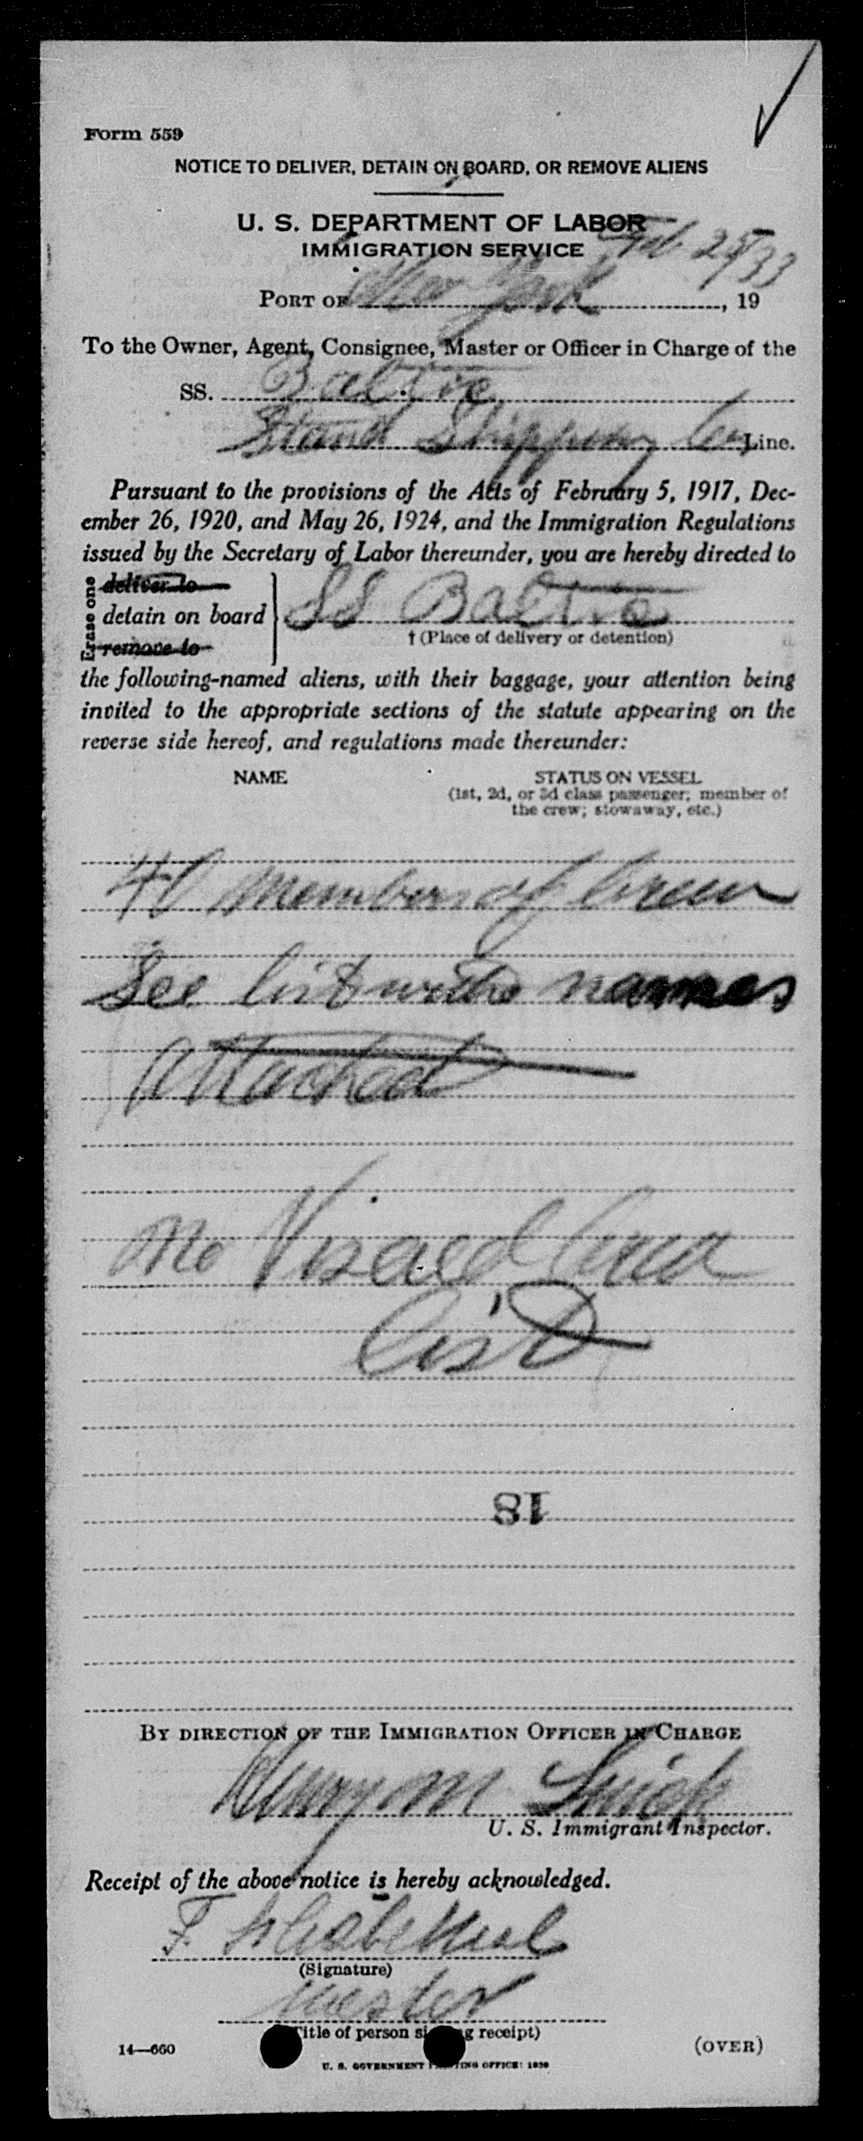 Form 559
NOTICE TO DELIVER, DETAIN ON BOARD, OR REMOVE ALIENS
U. S. DEPARTMENT OF LABOR
IMMIGRATION SERVICE
Feb 25/33
PORT OF New York, 19
To the Owner, Agent, Consignee, Master or Officer in Charge of the
SS. Baltic
Stand Shipping Co. Line.
Pursuant to the provisions of the Acts of February 5, 1917, Dec-
ember 26, 1920, and May 26, 1924, and the Immigration Regulations
issued by the Secretary of Labor thereunder, you are hereby directed to
Erase one
deliver to
detain on board SS Baltic
remove to
† (Place of delivery or detention)
the following-named aliens, with their baggage, your attention being
invited to the appropriate sections of the statute appearing on the
reverse side hereof, and regulations made thereunder:
NAME STATUS ON VESSEL
(1st, 2d, or 3d class passenger; member of
the crew; stowaway, etc.)
40 Members of Crew
See list with names
Attached
No Visaed Crew
List
18
BY DIRECTION OF THE IMMIGRATION OFFICER IN CHARGE
Henry M
U. S. Immigrant Inspector.
Receipt of the above notice is hereby acknowledged.
F.
(Signature)
Master
(Title of person signing receipt)
14—660
U. S. GOVERNMENT PRINTING OFFICE: 1930
(OVER)